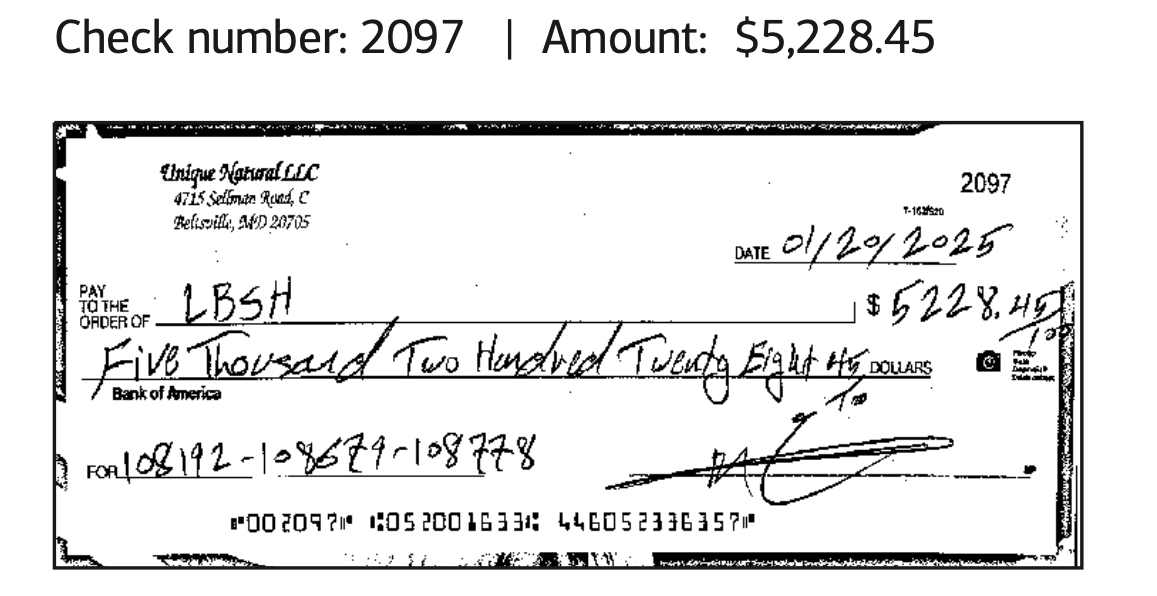 Check number: 2097 | Amount: $5,228.45
Unique Natural LLC
4715 Sellman Road, C
Beltsville, MD 20705
2097
7-163/520
DATE 01/20/2025
PAY TO THE ORDER OF LBSH $ 5228.45/100
Five Thousand Two Hundred Twenty Eight 45/100 DOLLARS
Bank of America
FOR 108192-108679-108778
⑈002097⑈ ⑆052001633⑆ 446052336357⑈